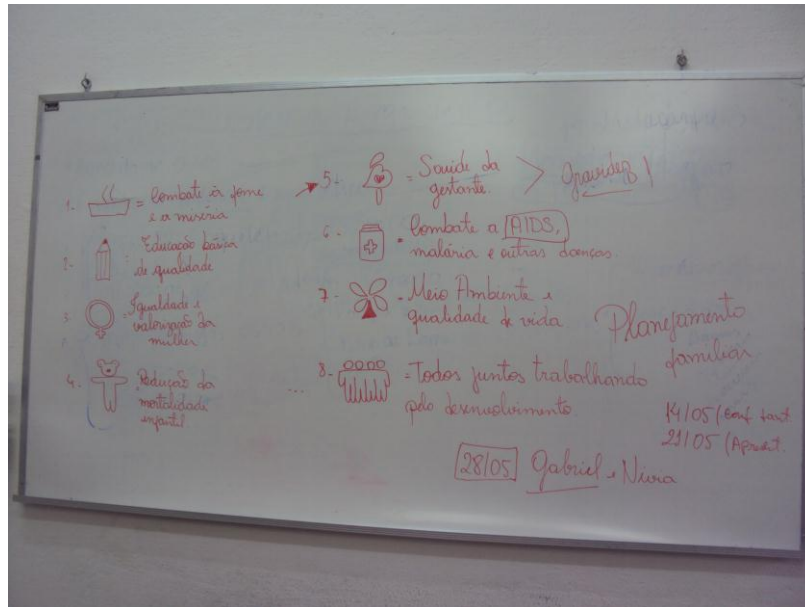 1. = Combate à fome
e a miséria
2 - Educação básica
de qualidade
3. = Igualdade e
valorização da
mulher
4. Redução da
mortalidade
infantil
5 = Saúde da
gestante. > Gravidez!
6 - = Combate a AIDS,
malária e outras doenças.
7 - = Meio Ambiente e
qualidade de vida
8. = Todos juntos trabalhando
pelo desenvolvimento
...
Planejamento
familiar
14/05 (
21/05 (
28/05 Gabriel e Nivia